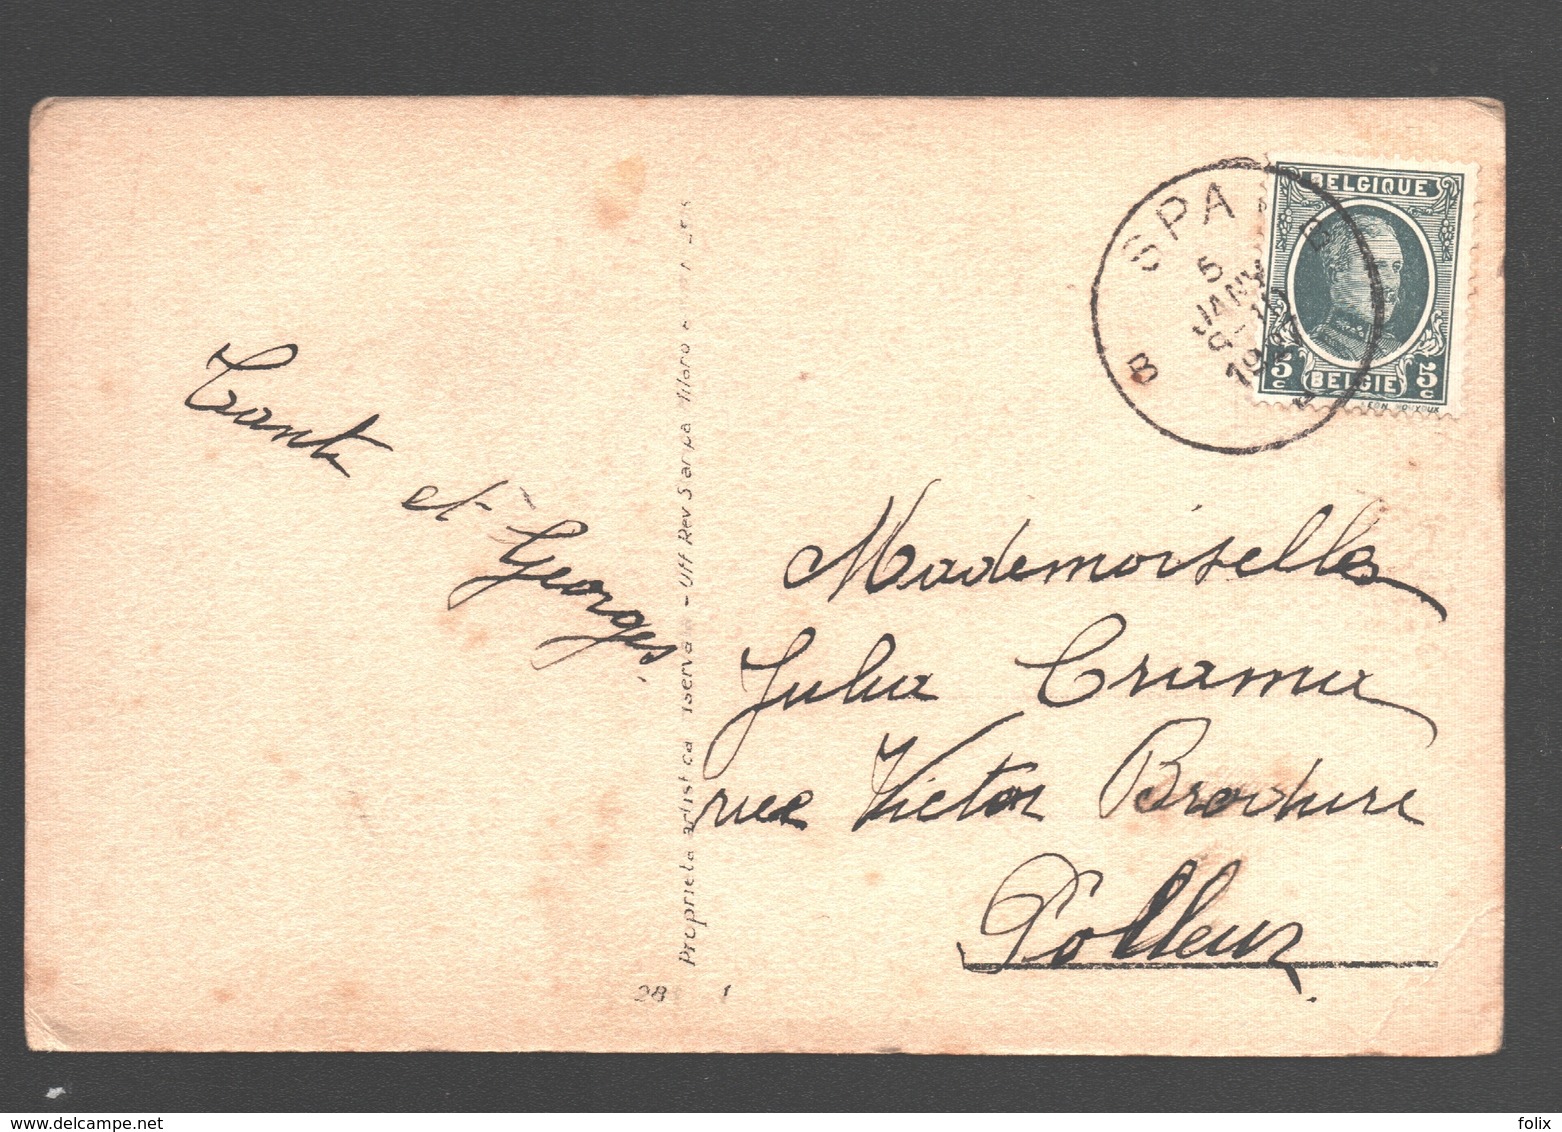 Tante et Georges.
Proprieta artistica riserva - Uff Rev Stampa Milano
28 1
SPA
5
JANV
19
B
BELGIQUE
5c BELGIE 5c
Mademoiselle
Julia Crama
rue Victor Brodure
Polleur.
folix